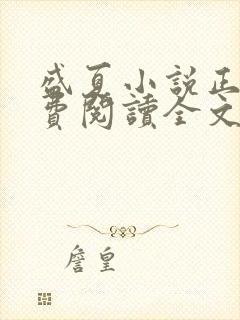 盛夏小說正
費閱讀全文
詹皇